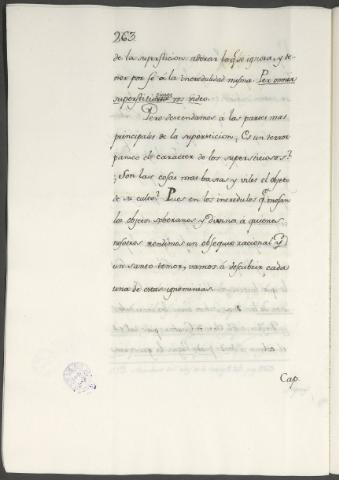 263.
de la supersticion adorar lo q.e ignora, y te-
ner por fé á la incredulidad misma. Per omnia
superstitiosiores vos video.
Pero descendamos a las partes mas
principales de la supersticion. ¿Es un terror
panico el carácter de los supersticiosos?
¿Son las cosas mas bajas y viles el objeto
de su culto? Pues en los incredulos q.e mofan
los objetos soberanos y divinos á quienes
nosotros rendimos un obsequio racional y
un santo temor, vamos á descubrir cada
una de estas ignominias.
Cap.